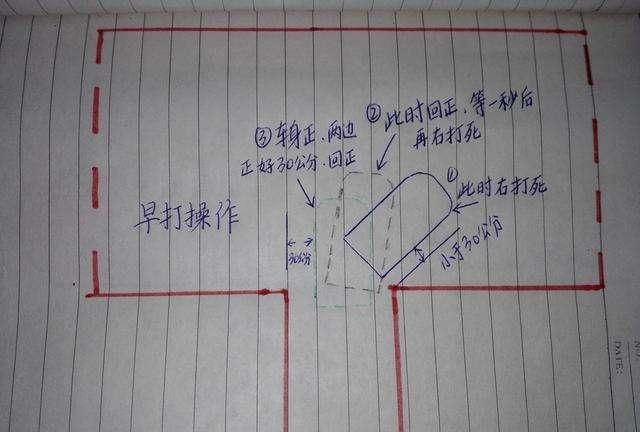 ③车身正.两边
正好30公分.回正
②此时回正.等一秒后
再右打死
①
此时右打死
早打操作
30公分
小于30公分
NO.
DATE: